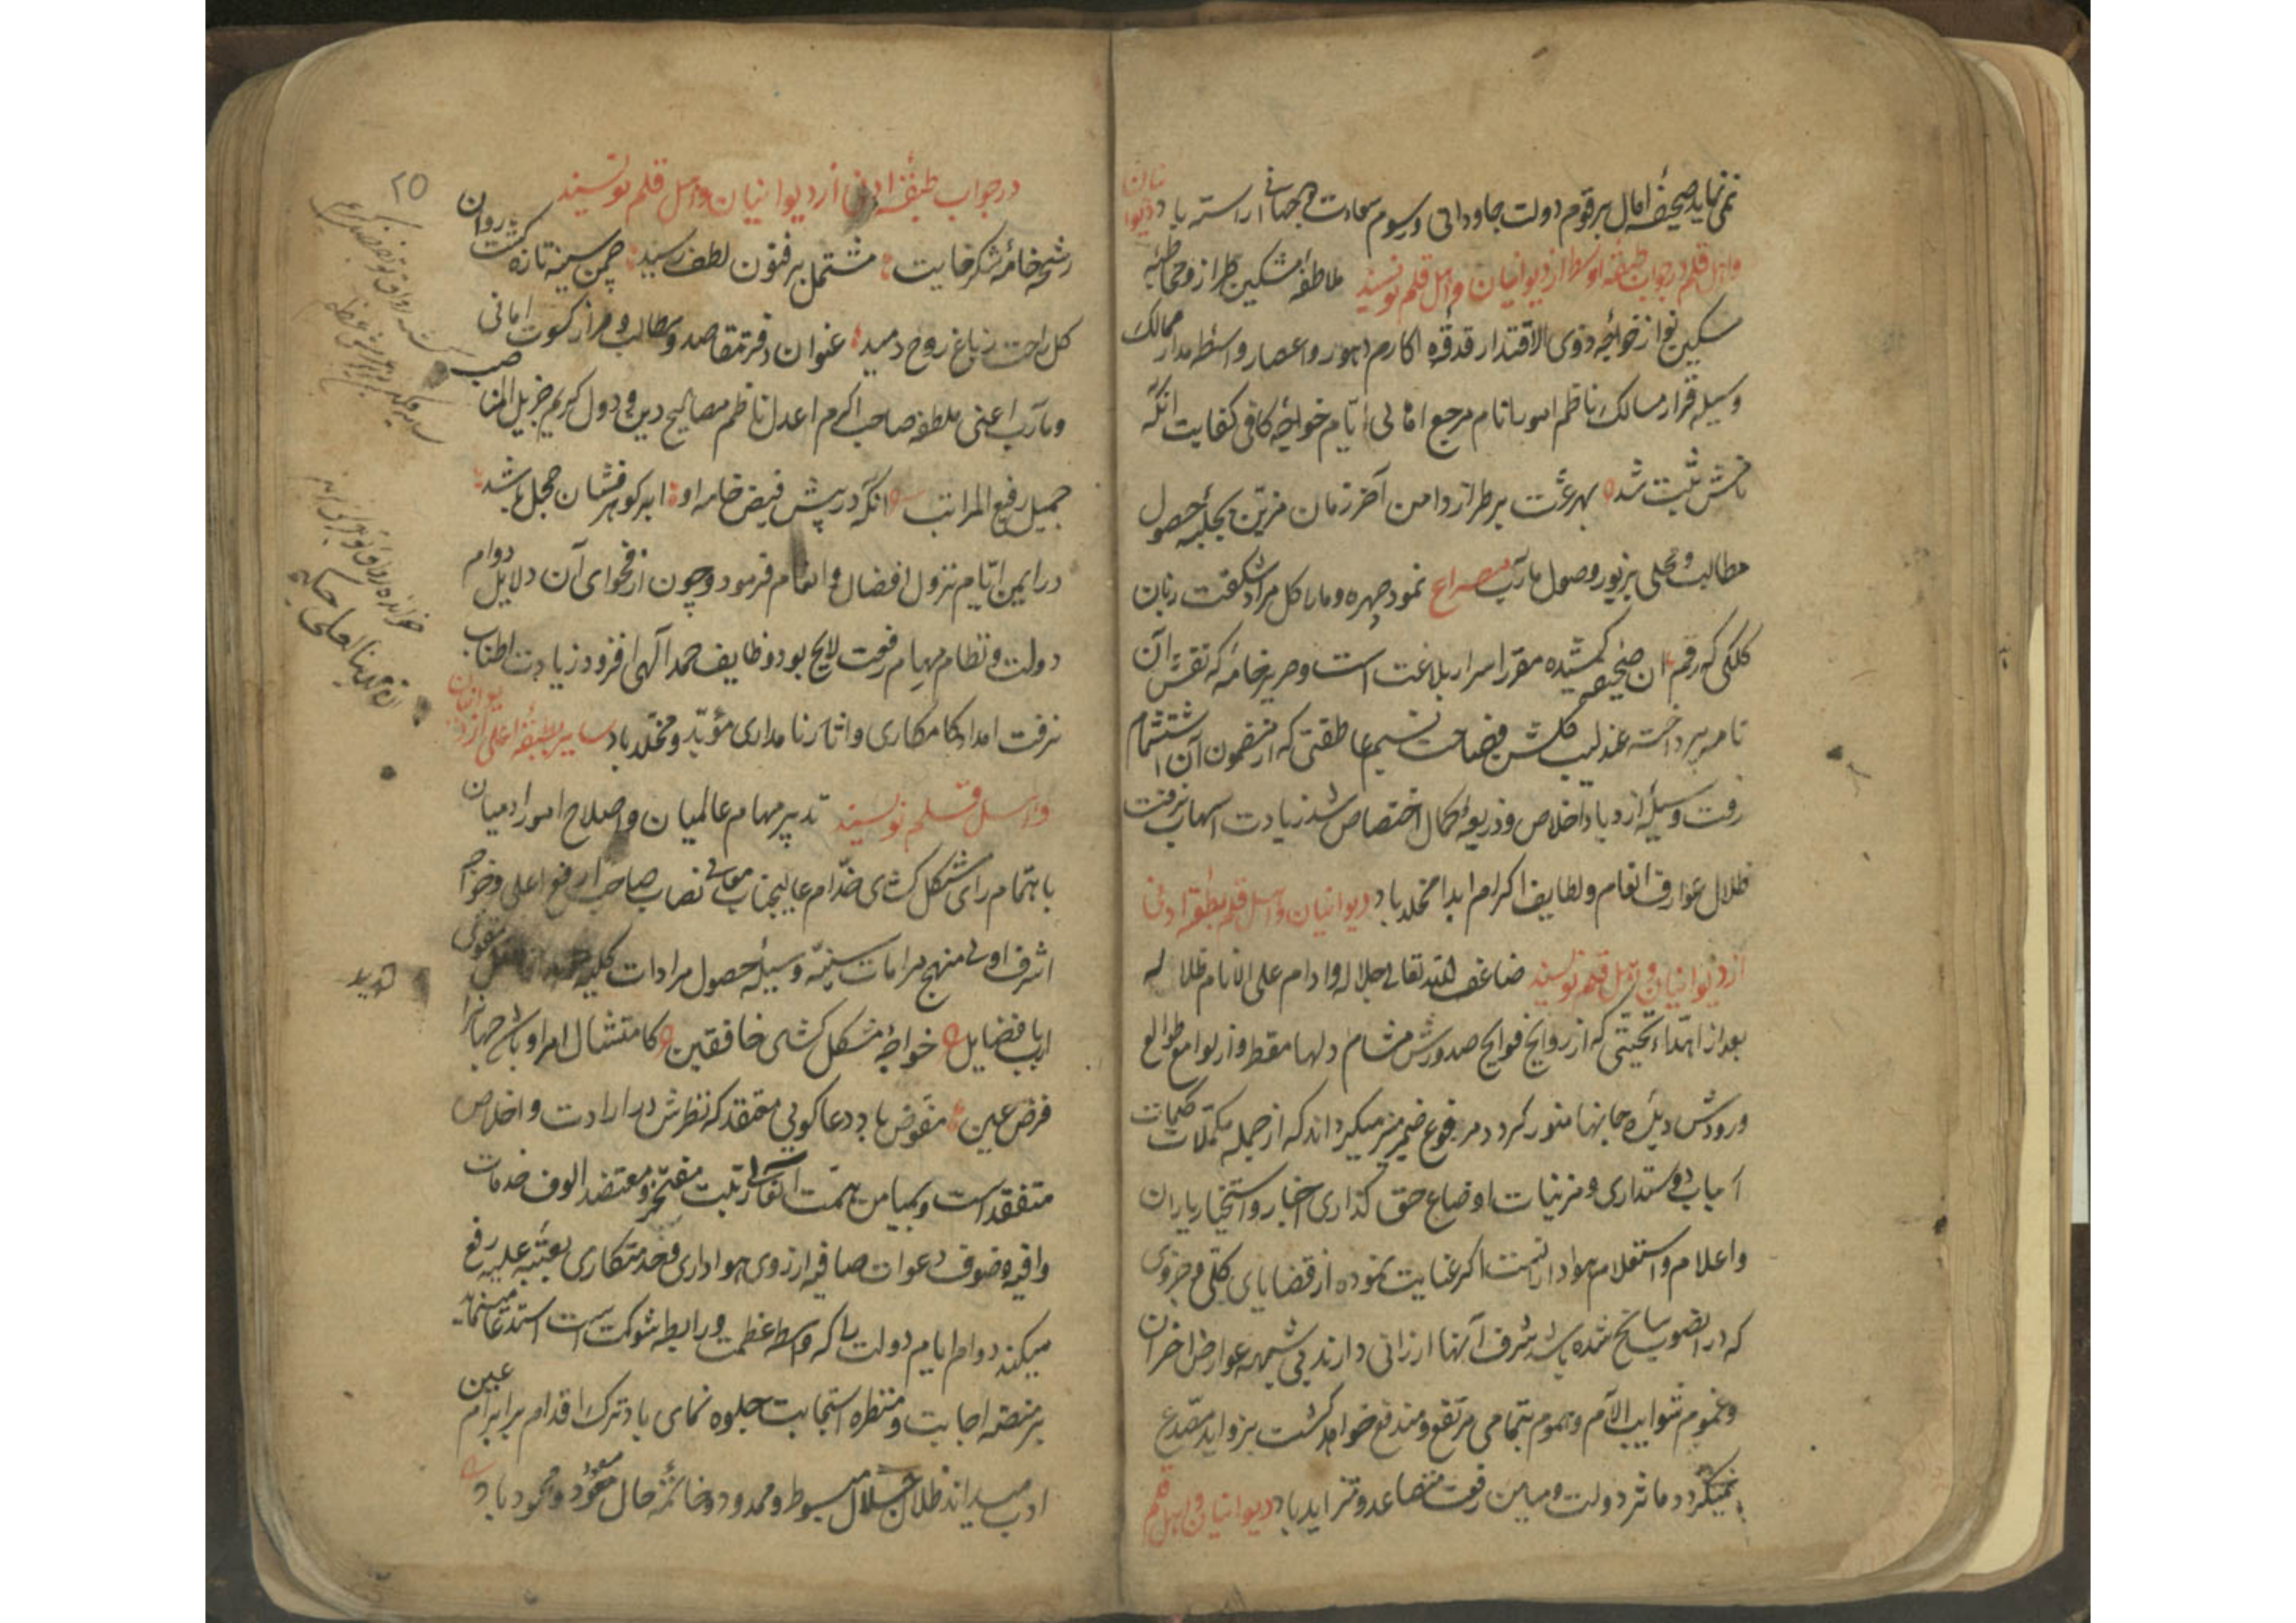 نمی نماید صحیفهٔ امال برقوم دولت جاودانی و رسوم سعادت دو جهانی اراسته باد دیوانیان
واهل قلم در جواب طبقهٔ اوسط از دیوانیان واهل قلم نویسند ملاطفهٔ مشکین طراز ومخاطبهٔ
مسکین نواز خواجهٔ ذوی الاقتدار قدوهٔ اکارم دهور واعصار واسطهٔ مدار ممالک
وسیلهٔ قرار مسالک ناظم امور انام مرجع اهالی ایام خواجهٔ کافی کفایت انکه
نامش ثبت شد بهر عزت بر طراز دامن آخر زمان مزین بحلیهٔ حصول
مطالب ومحلی بزیور وصول مآرب مصراع نمود چهره ومارا کل مراد شکفت زبان
کلکی که رقم ان صحیفه کشیده مقرر اسرار بلاغت است وصریر خامهٔ که نقش آن
نامه پرداخته عندلیب کلشن فصاحت نسیم عاطفتی که از مضمون آن استشمام
رفت وسیلهٔ ازدیاد اخلاص وذریعهٔ کمال اختصاص شد زیادت اسهاب نرفت
ظلال عوارف انعام ولطایف اکرام ابدا مخلد باد دیوانیان واهل قلم بطبقهٔ ادنی
از دیوانیان واهل قلم نویسند ضاعف الله تعالی جلاله وادام علی الانام ظلاله
بعد از اهداء تحیتی که از روایح فوایح صدورش مشام دلها معطر واز لوامع طوالع
ورودش دیدهٔ جانها منور کردد مرفوع ضمیر منیر میکرداند که از جمله مکملات
اسباب دوستداری ومزینات اوضاع حق کذاری اخبار واستخبار یاران
واعلام واستعلام هواداران است اکر عنایت نموده از قضایای کلی وجزوی
که در انصوب سانح شده باشد شرف آنها ارزانی دارند بی شبهه عوارض احزان
وغموم شوایب الآم وهموم بتمامی مرتفع ومندفع خواهد کشت بزواید مصدع
نمیکردد مآثر دولت ومیامن رفعت متصاعد ومتزاید باد دیوانیان واهل قلم
۲۵
در جواب طبقهٔ ادنی از دیوانیان واهل قلم نویسند
رشحهٔ خامهٔ شکرخایت مشتمل بر فنون لطف رسید چمن سینه تازه کشت روان
کل راحت زباغ روح دمید عنوان دفتر مقاصد ومطالب وطراز کسوت امانی
ومآرب اعنی ملطفهٔ صاحب اکرم اعدل ناظم مصالح دین ودول کریم جزیل المناصب
جمیل رفیع المراتب انکه در پیش فیض خامه او ابر کوهرفشان خجل باشد
در ایمن ایام نزول افضال وانعام فرمود وچون از فحوای آن دلایل دوام
دولت ونظام مهام رفعت لایح بود وظایف حمد آلهی افزود زیادت اطناب
نرفت امداد کامکاری واثار نامداری مؤید ومخلد باد سایر بطبقهٔ اعلی از دیوانیان
واهل قلم نویسند تدبیر مهام عالمیان واصلاح امور ادمیان
باهتمام رای مشکل کشای خدام عالیجناب معالی نصاب صاحب ارفع اعلی وخواجه
اشرف اولی منهج مرامات سنیه وسیلهٔ حصول مرادات
ارباب فضایل خواجهٔ مشکل کشای خافقین کامتثال امر او باشد جهانرا
فرض عین مفوض باد دعاکویی معتقد که نظرش در ارادت واخلاص
متفقد است وبمیامن همت مفتخر ومعتضد الوف خدمات
وافیه وصنوف دعوات صافیه از روی هواداری وخدمتکاری بعتبه علیه رفع
میکند دوام ایام دولت را که واسطه عظمت ورابطه شوکت است استدعا مینماید
بر منصه اجابت ومنظره استجابت جلوه نمای باد ترک اقدام بر ابرام عین
ادب میداند ظلال جلال مبسوط وممدود وخاتمهٔ حال محمود باد